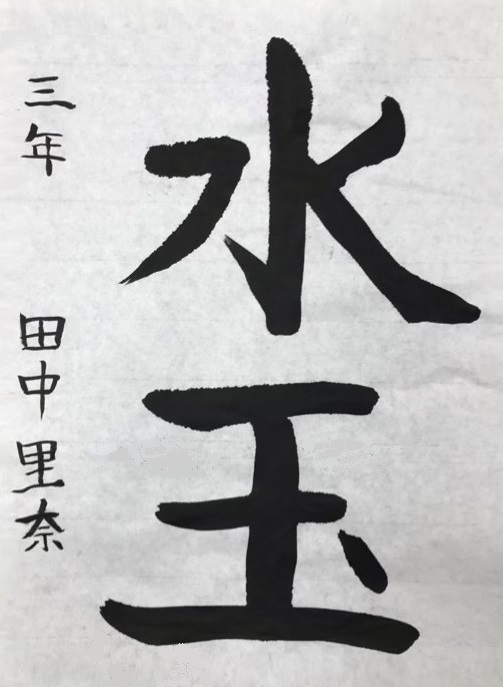 水玉
三年 田中里奈